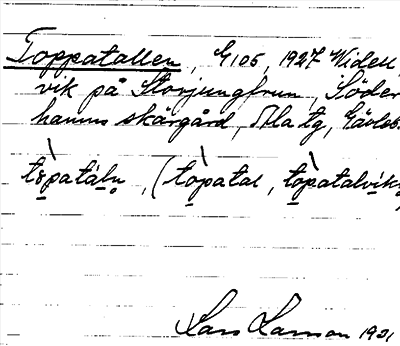 Toppatallen, G105, 1927 Widell
vik på Storjungfrun, Söder
hamns skärgård, Ala tg, Gävleb.
tòpatáln, (tòpatal, tòpatalvík
Lars Larson 1921